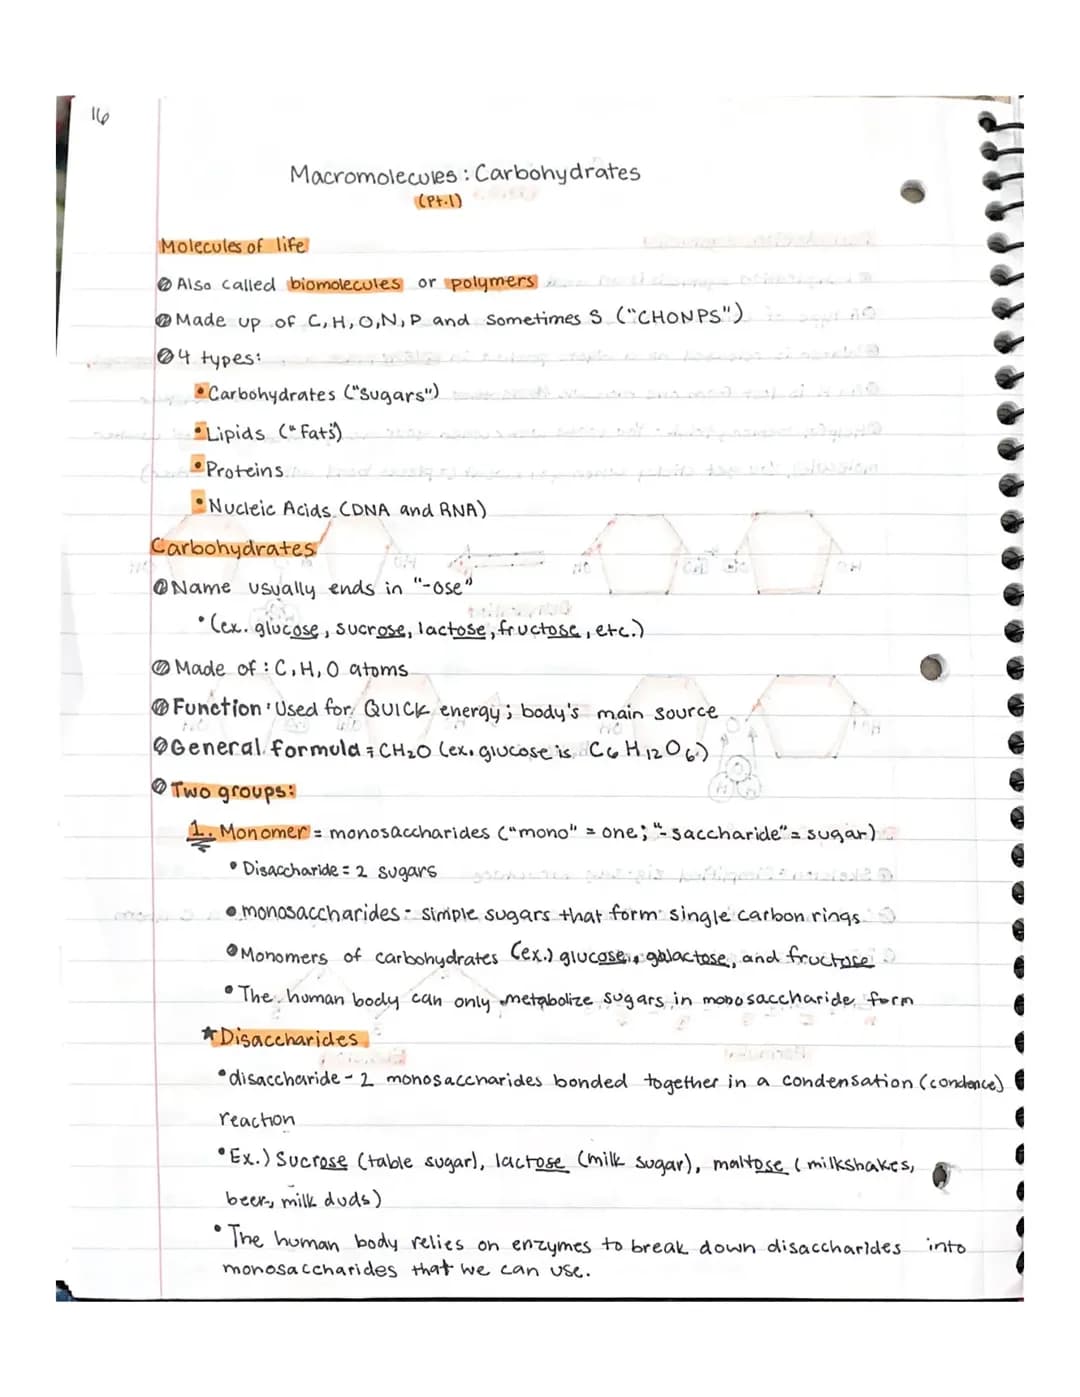 16
Macromolecules: Carbohydrates
(Pt.1)
Molecules of life
Also called biomolecules or polymers
Made up of C, H, O, N, P and Sometimes S ("CHONPS")
4 types:
• Carbohydrates ("Sugars")
• Lipids ("Fats")
• Proteins
• Nucleic Acids (DNA and RNA)
Carbohydrates
Name usually ends in "-ose"
• (ex. glucose, sucrose, lactose, fructose, etc.)
Made of: C, H, O atoms
Function: Used for QUICK energy; body's main source
General formula = CH2O (ex. glucose is C6H12O6)
Two groups:
1. Monomer = monosaccharides ("mono" = one; "-saccharide" = sugar)
• Disaccharide = 2 sugars
• monosaccharides - simple sugars that form single carbon rings
• Monomers of carbohydrates (ex.) glucose, galactose, and fructose
• The human body can only metabolize sugars in monosaccharide form
★ Disaccharides
• disaccharide - 2 monosaccharides bonded together in a condensation (condence)
reaction
• Ex.) Sucrose (table sugar), lactose (milk sugar), maltose (milkshakes,
beer, milk duds)
• The human body relies on enzymes to break down disaccharides into
monosaccharides that we can use.